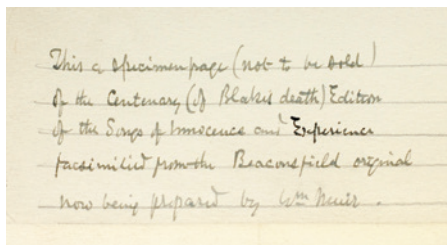 This a specimen page (not to be sold)
of the Centenary (of Blake's death) Edition
of the Songs of Innocence and Experience
facsimilied from the Beaconsfield original
now being prepared by Wm Muir.